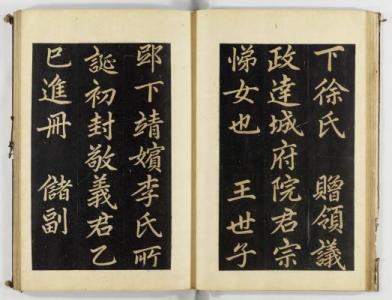 下徐氏　贈領議
政達城府院君宗
悌女也　王世子
邸下靖嬪李氏所
誕初封敬義君乙
巳進冊　儲副